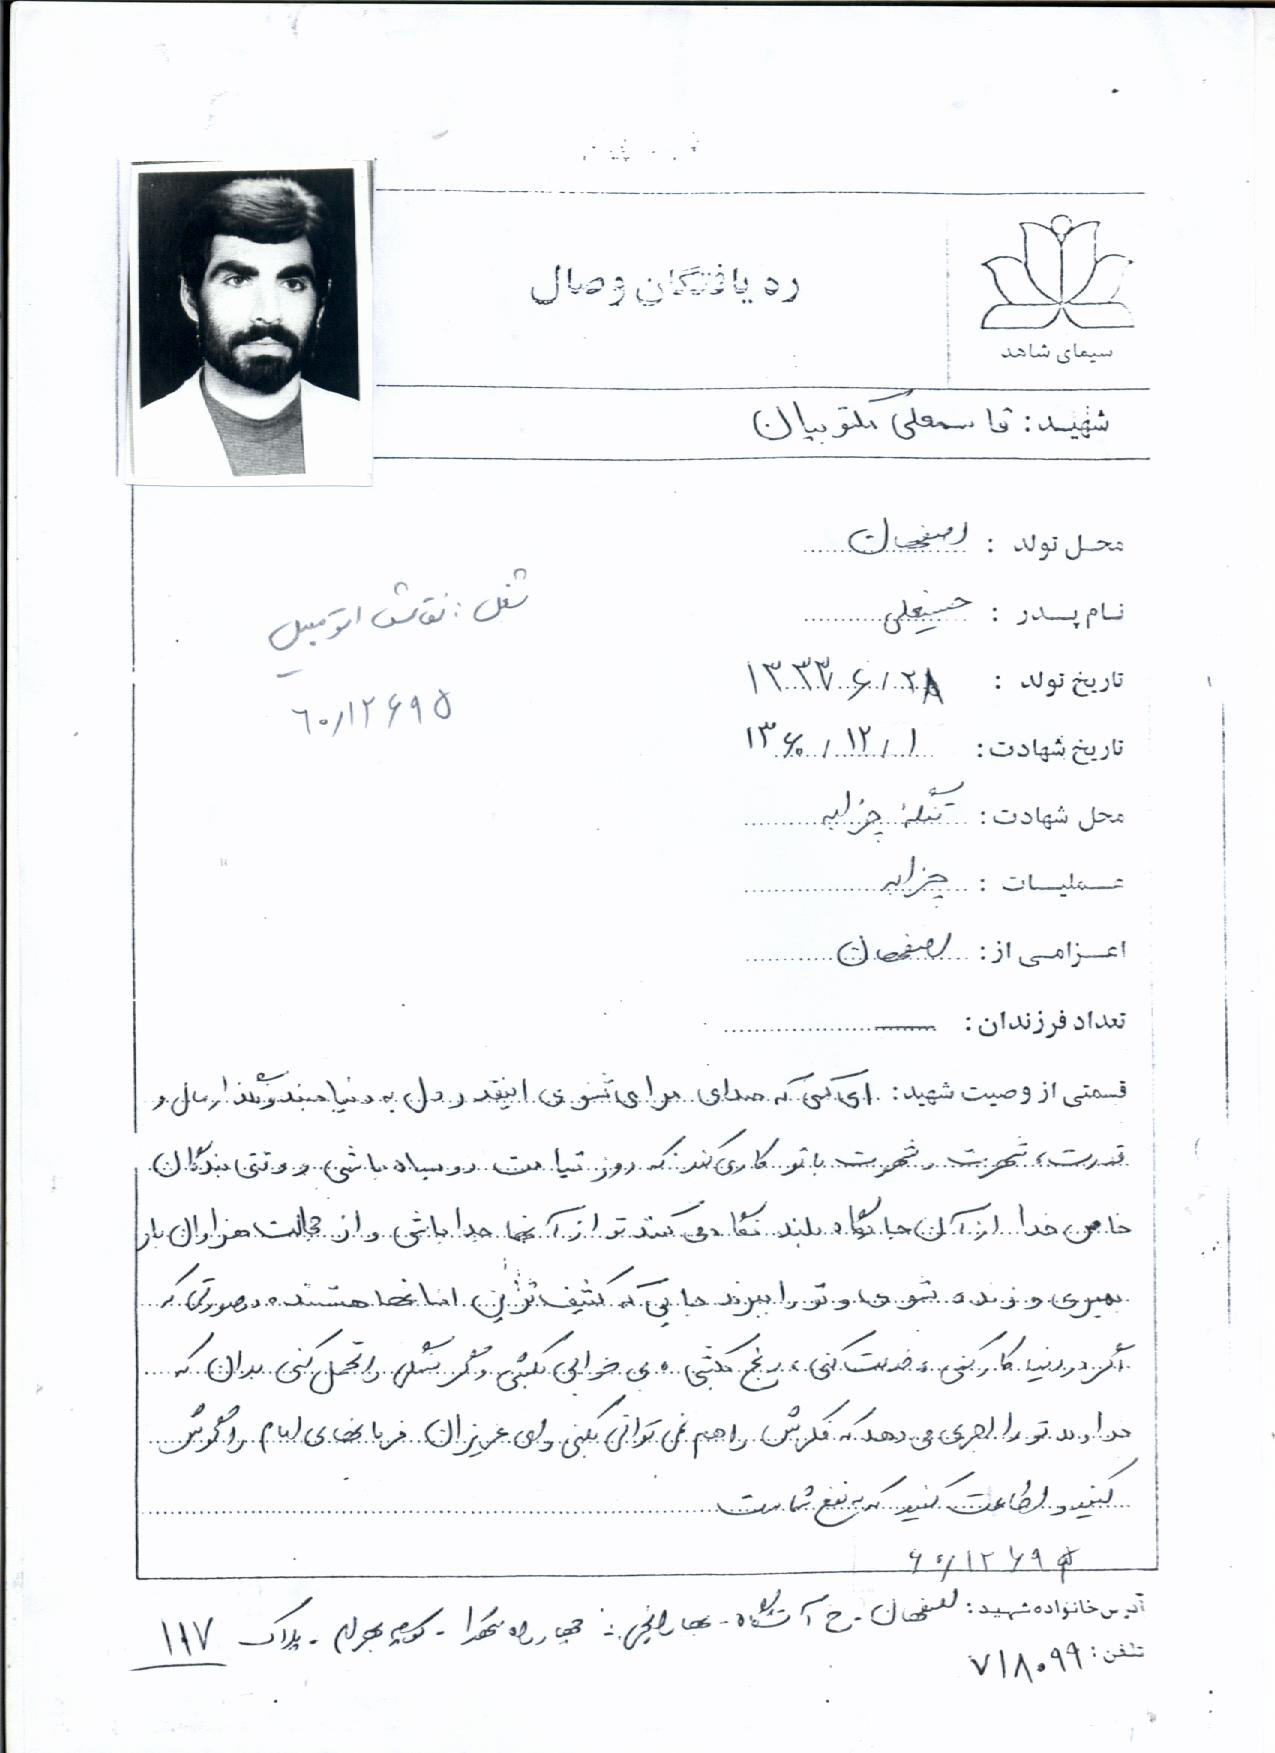 ره یافتگان وصال
سیمای شاهد
شهید: قاسمعلی مکتوبیان
محل تولد : اصفهان
نام پدر : حسینعلی
شغل: نقاش اتومبیل
تاریخ تولد : ۱۳۳۷/۶/۲۸
۶۰/۱۲۶۹۵
تاریخ شهادت: ۱۳۶۰/۱۲/۱
محل شهادت: تنگه چزابه
عملیات : چزابه
اعزامی از: اصفهان
تعداد فرزندان: ـــ
قسمتی از وصیت شهید: ای کسی که صدای مرا می شنوی اینقدر دل به دنیا مبند و نگذار مال و
قدرت، شهرت و شهوت با تو کاری کند که روز قیامت رو سیاه باشی و وقتی بندگان
خاص خدا از آن جایگاه بلند نگاه می کنند تو از آنها جدا باشی و از خجالت هزاران بار
بمیری و زنده شوی و تو را ببرند جایی که کثیف ترین انسانها هستند در صورتی که
اگر در دنیا کار کنی، خدمت کنی، رنج بکشی، بی خوابی بکشی و گرسنگی را تحمل کنی بدان که
خداوند تو را اجری می دهد که فکرش را هم نمی توانی بکنی و ای عزیزان فرمانهای امام را گوش
کنید و اطاعت کنید که به نفع شماست
۶۰/۱۲۶۹۵
آدرس خانواده شهید: اصفهان - خ آتشگاه - چهارراه شهدا - کوچه بهرام - پلاک ۱۱۷
تلفن: ۷۱۸۰۹۹